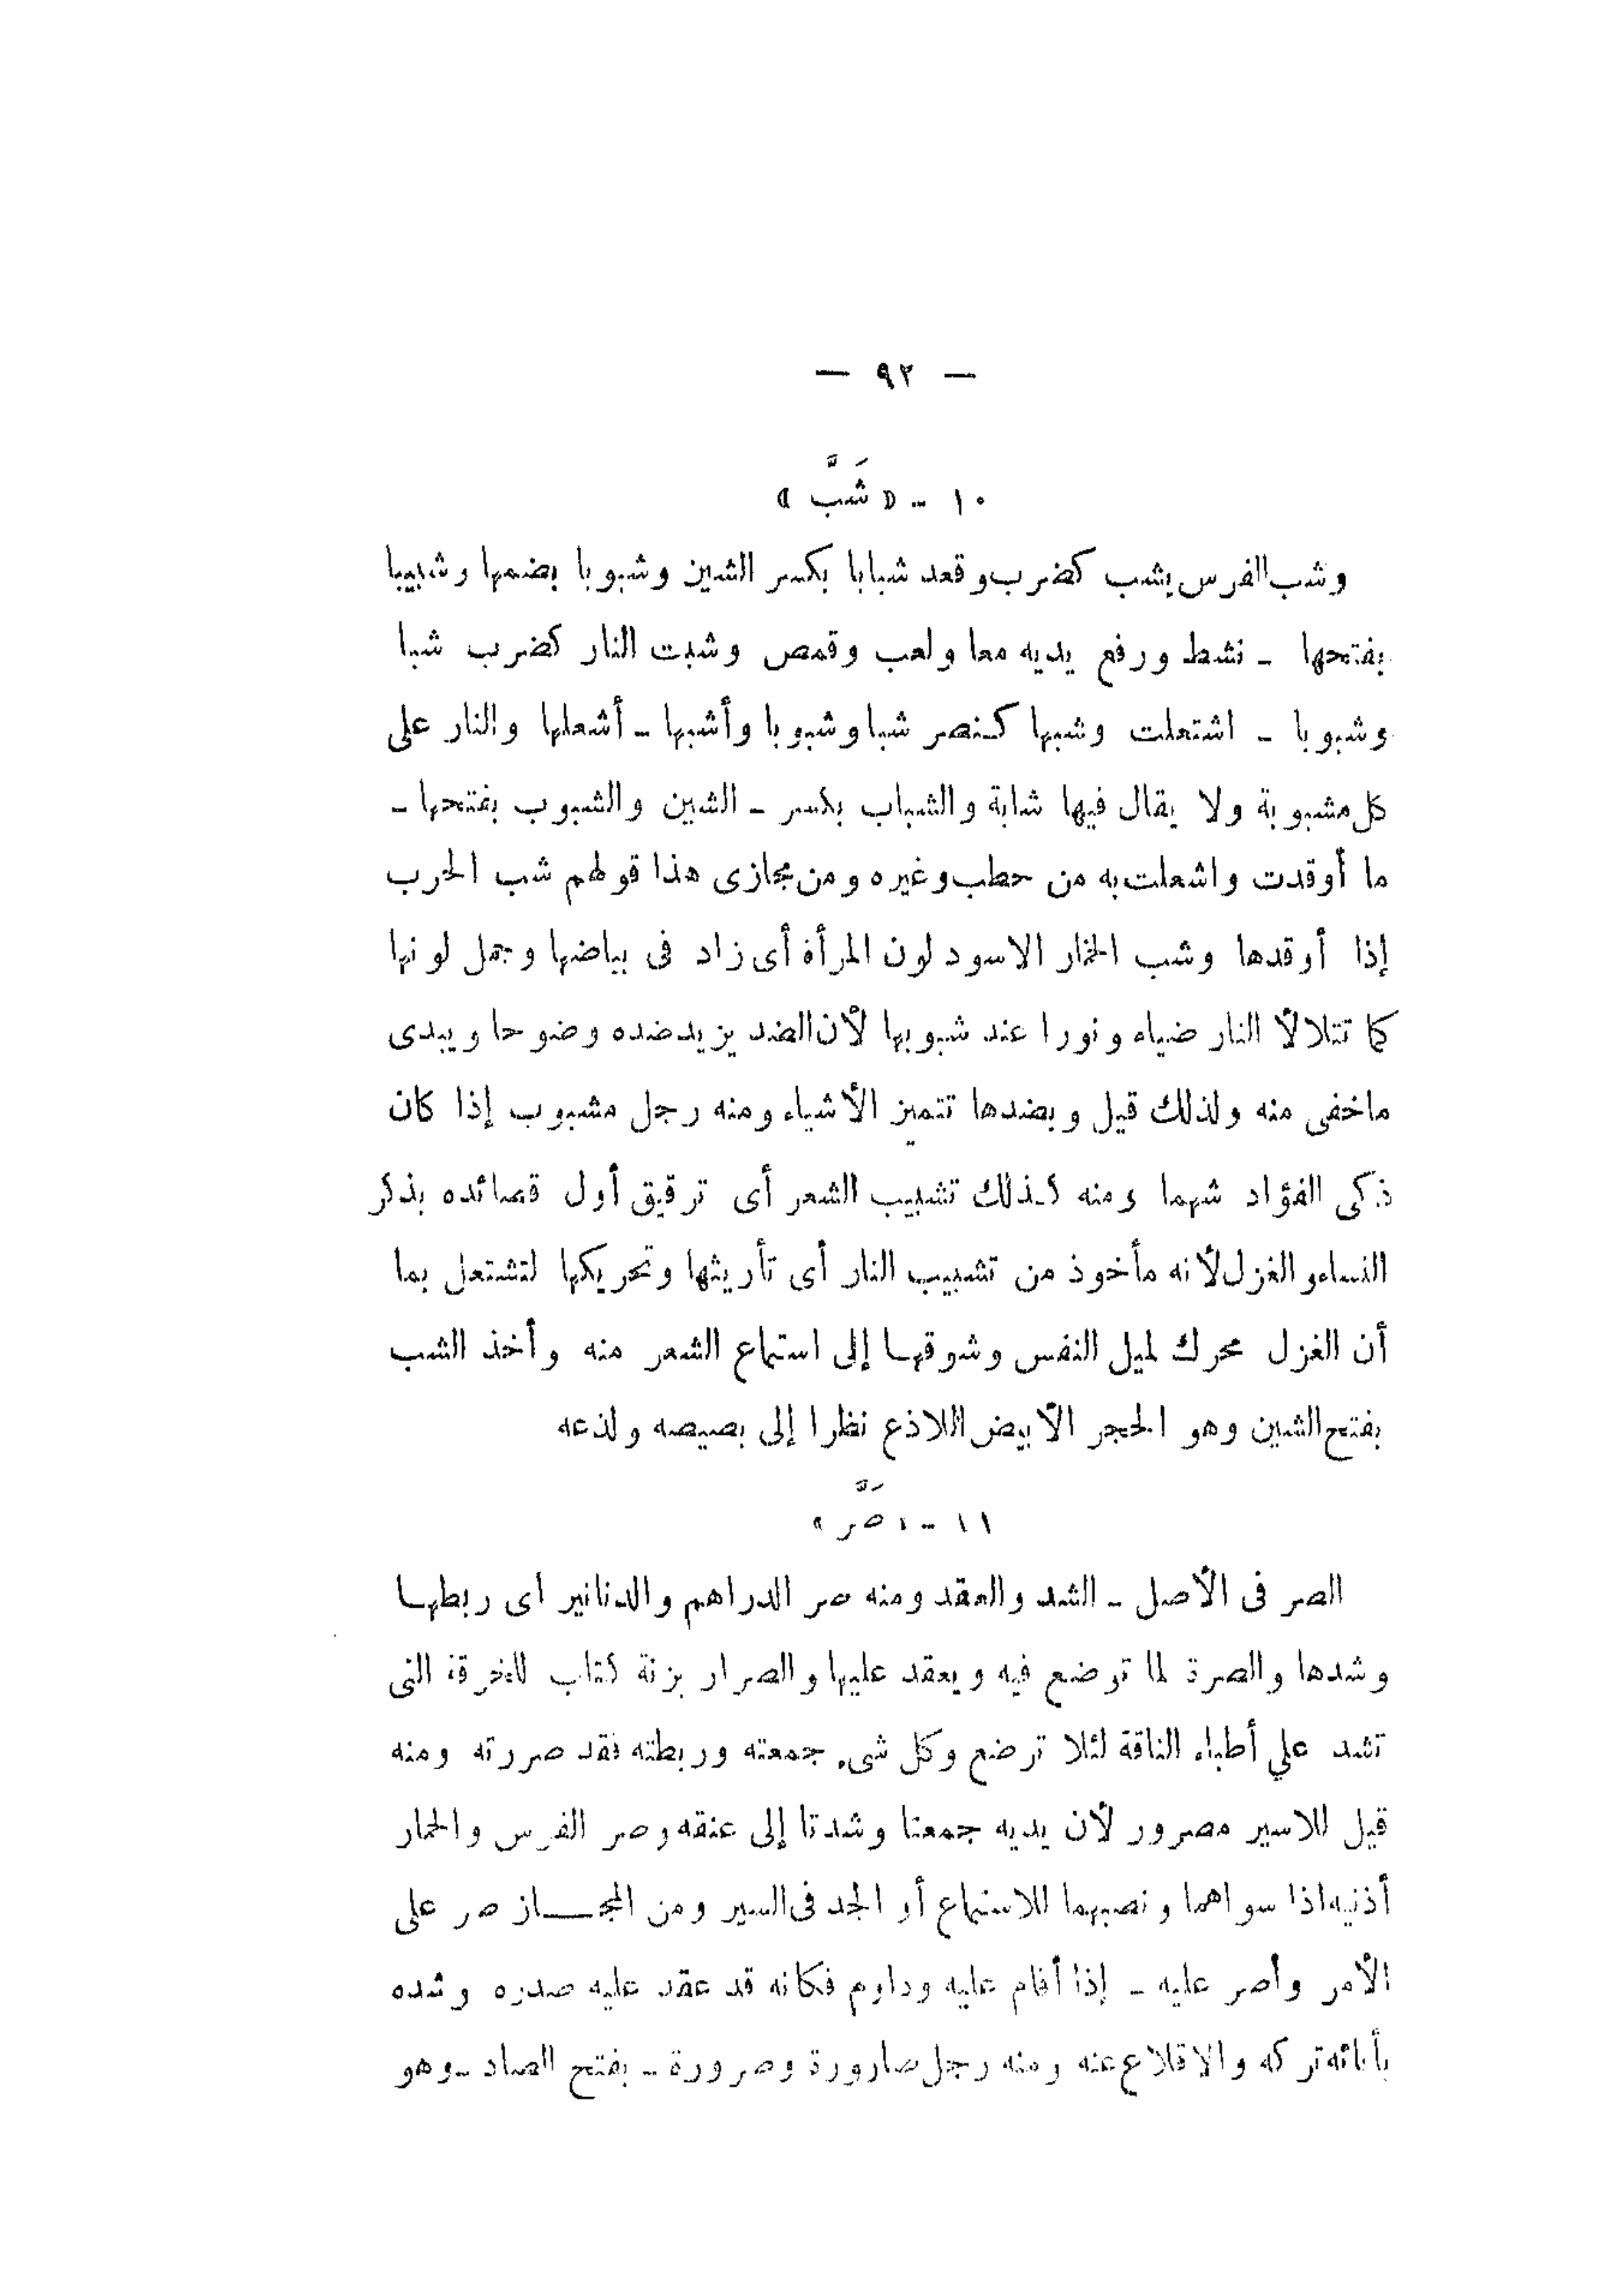 — ٩٢ —
١٠ — « شَبَّ »
وشب الفرس يشب كضرب وقعد شبابا بكسر الشين وشبوبا بضمها وشبيبا
بفتحها – نشط ورفع يديه معا ولعب وقمص وشبت النار كضرب شبا
وشبوبا – اشتعلت وشبها كنصر شبا وشبوبا وأشبها – أشعلها والنار على
كل مشبوبة ولا يقال فيها شابة والشباب بكسر – الشين والشبوب بفتحها –
ما أوقدت واشعلت به من حطب وغيره ومن مجازى هذا قولهم شب الحرب
إذا أوقدها وشب الخمار الاسود لون المرأة أى زاد فى بياضها وجمل لونها
كما تتلالأ النار ضياء ونورا عند شبوبها لأن الضد يزيد ضده وضوحا ويبدى
ماخفى منه ولذلك قيل وبضدها تتميز الأشياء ومنه رجل مشبوب إذا كان
ذكى الفؤاد شهما ومنه كذلك تشبيب الشعر أى ترقيق أول قصائده بذكر
النساء والغزل لأنه مأخوذ من تشبيب النار أى تأريثها وتحريكها لتشتعل بما
أن الغزل محرك لميل النفس وشوقها إلى استماع الشعر منه وأخذ الشب
بفتح الشين وهو الحجر الأبيض اللاذع نظرا إلى بصيصه ولذعه
١١ — « صَرَّ »
الصر فى الأصل – الشد والعقد ومنه صر الدراهم والدنانير اى ربطها
وشدها والصرة لما توضع فيه ويعقد عليها والصرار بزنة كتاب للخرقة التى
تشد علي أطباء الناقة لئلا ترضع وكل شىء جمعته وربطته فقد صررته ومنه
قيل للاسير مصرور لأن يديه جمعتا وشدتا إلى عنقه وصر الفرس والحمار
أذنيه اذا سواهما ونصبهما للاستماع أو الجد فى السير ومن المجاز صر على
الأمر وأصر عليه – إذا أقام عليه وداوم فكانه قد عقد عليه صدره وشده
بأبائه تركه والاقلاع عنه ومنه رجل صارورة وصرورة – بفتح الصاد – وهو